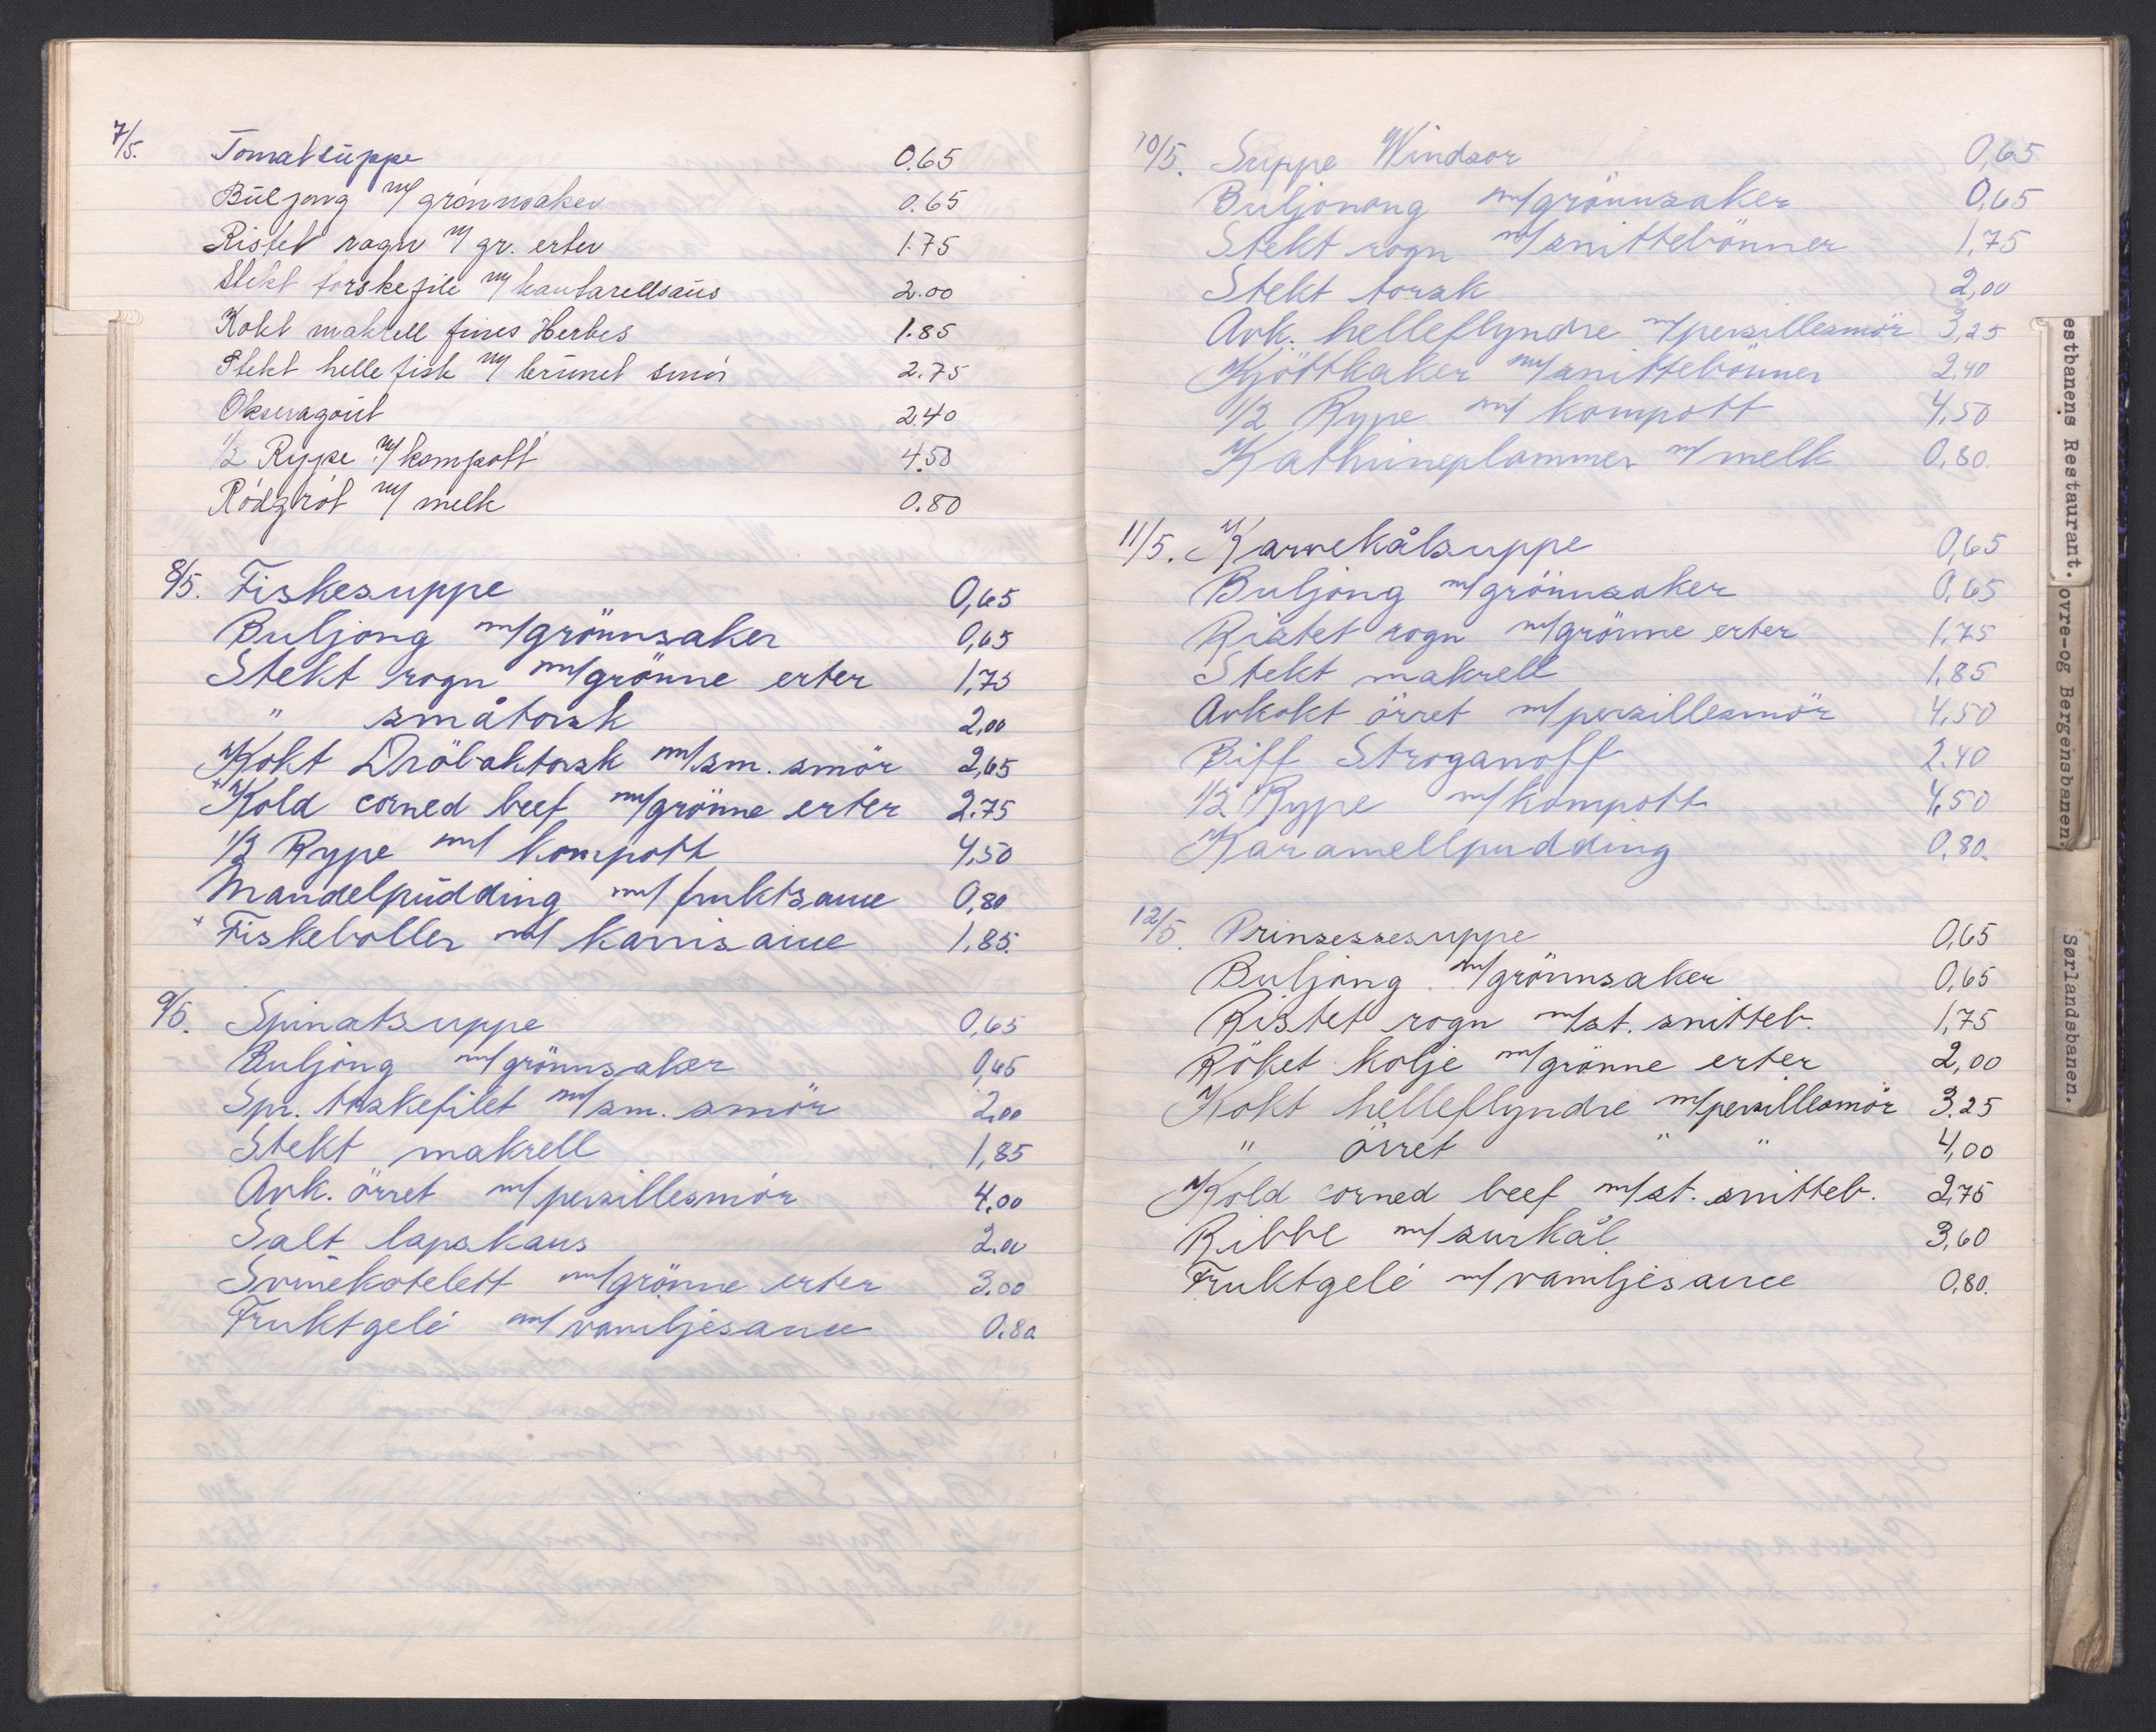 7/5. Tomatsuppe 0.65
Buljong m/ grønnsaker 0.65
Ristet rogn m/ gr. erter 1.75
Stekt torskefile m/ kantarellsaus 2.00
Kokt makrell fines Herbes 1.85
Stekt hellefisk m/ brunet smør 2.75
Okseragout 2.40
1/2 Rype m/ kompott 4.50
Rødgrøt m/ melk 0.80
8/5. Fiskesuppe 0,65
Buljong m/grönnsaker 0,65
Stekt rogn m/grönne erter 1,75
" småtorsk 2,00
Kokt Dröbaktorsk m/sm. smör 2,65
+ Kold corned beef m/grönne erter 2.75
1/2 Rype m/ kompott 4,50
Mandelpudding m/ fruktsauce 0,80
+ Fiskeboller m/ karrisauce 1,85.
9/5. Spinatsuppe 0,65
Buljong m/grönnsaker 0,65
Spr. torskefilet m/sm. smör 2,00
Stekt makrell 1,85
Avk. örret m/persillesmör 4,00
Salt lapskaus 2.00
Svinekotelett m/grönne erter 3.00
Fruktgelé m/vaniljesauce 0.80
10/5. Suppe Windsor 0,65
Buljonong m/grönnsaker 0,65
Stekt rogn m/snittebönner 1,75
Stekt torsk 2,00
Avk. helleflyndre m/persillesmör 3,25
Kjöttkaker m/snittebönner 2,40
1/2 Rype m/ kompott 4,50
Kathrineplommer m/melk 0,80.
11/5. Karvekålsuppe 0,65
Buljong m/grönnsaker 0,65
Ristet rogn m/grönne erter 1,75
Stekt makrell 1,85
Avkokt örret m/persillesmör 4,50
Biff Stroganoff 2.40
1/2 Rype m/kompott 4,50
Karamellpudding 0,80.
12/5. Prinsessesuppe 0,65
Buljong m/grönnsaker 0,65
Ristet rogn m/st. snitteb. 1,75
Röket kolje m/grönne erter 2,00
Kokt helleflyndre m/persillesmör 3,25
" örret " " 4,00
Kold corned beef m/st. snitteb. 2,75
Ribbe m/surkål 3,60
Fruktgelé m/vaniljesauce 0,80.
estbanens Restaurant.
ovre-og Bergensbanen.
Sørlandsbanen.